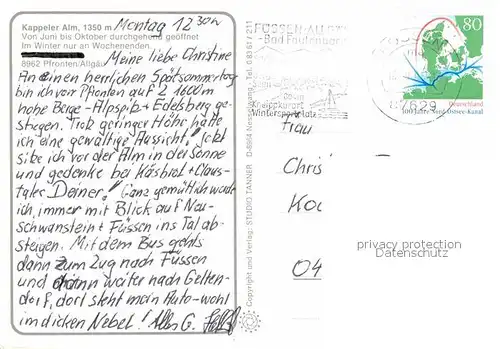 Kappeler Alm, 1350 m
Von Juni bis Oktober durchgehend geöffnet
Im Winter nur an Wochenenden.
8962 Pfronten/Allgäu
Montag 12 30h
Meine liebe Christine
An einen herrlichen Spätsommertag
bin ich vor Pfronten auf 2 1600m
hohe Berge - Alpspitz + Edelsberg ge-
stiegen. Trotz geringer Höhe hatte
ich eine gewaltige Aussicht! Jetzt
sitze ich vor der Alm in der Sonne
und gedenke bei Käsbrot + Claus-
taler Deiner! Ganz gemütlich werde
ich, immer mit Blick auf Neu-
schwanstein + Füssen ins Tal ab-
steigen. Mit dem Bus gehts
dann zum Zug nach Füssen
und dann weiter nach Gelten-
dorf, dort steht mein Auto - wohl
im dicken Nebel! Alles G.
Copyright und Verlag: STUDIO TANNER D-8964 Nesselwang, Tel. 08361/211
FÜSSEN
Bad Faulenbach
Kneippkurort
Wintersportplatz
87629
80
Deutschland
100 Jahre Nord-Ostsee-Kanal
Frau
Chris
04
privacy protection
Datenschutz